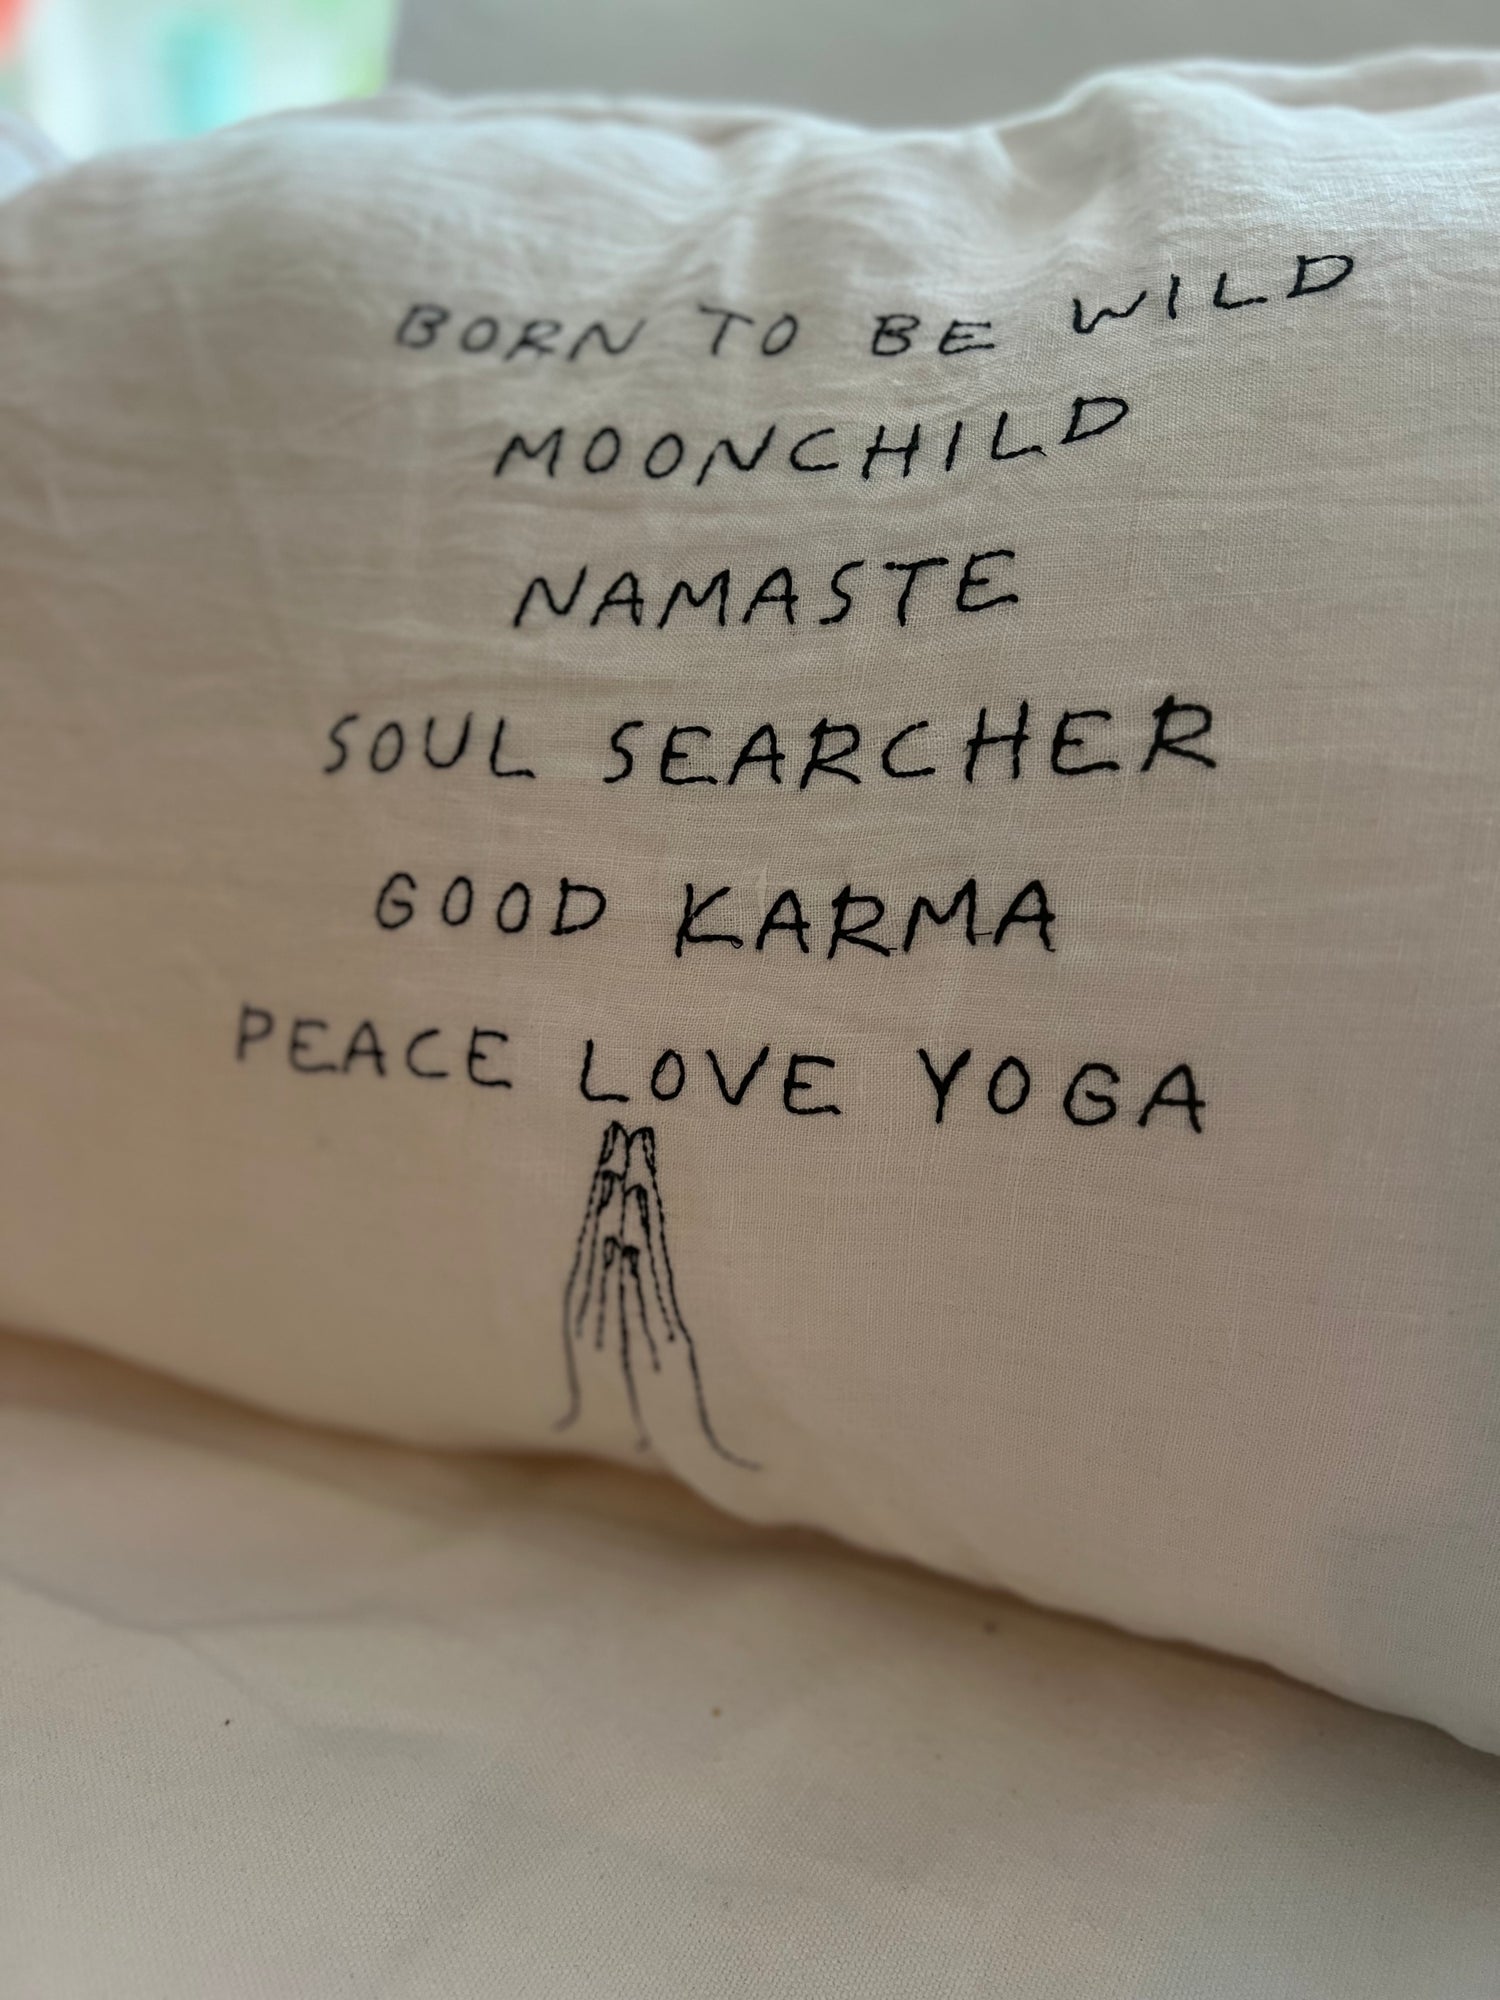 BORN TO BE WILD
MOONCHILD
NAMASTE
SOUL SEARCHER
GOOD KARMA
PEACE LOVE YOGA